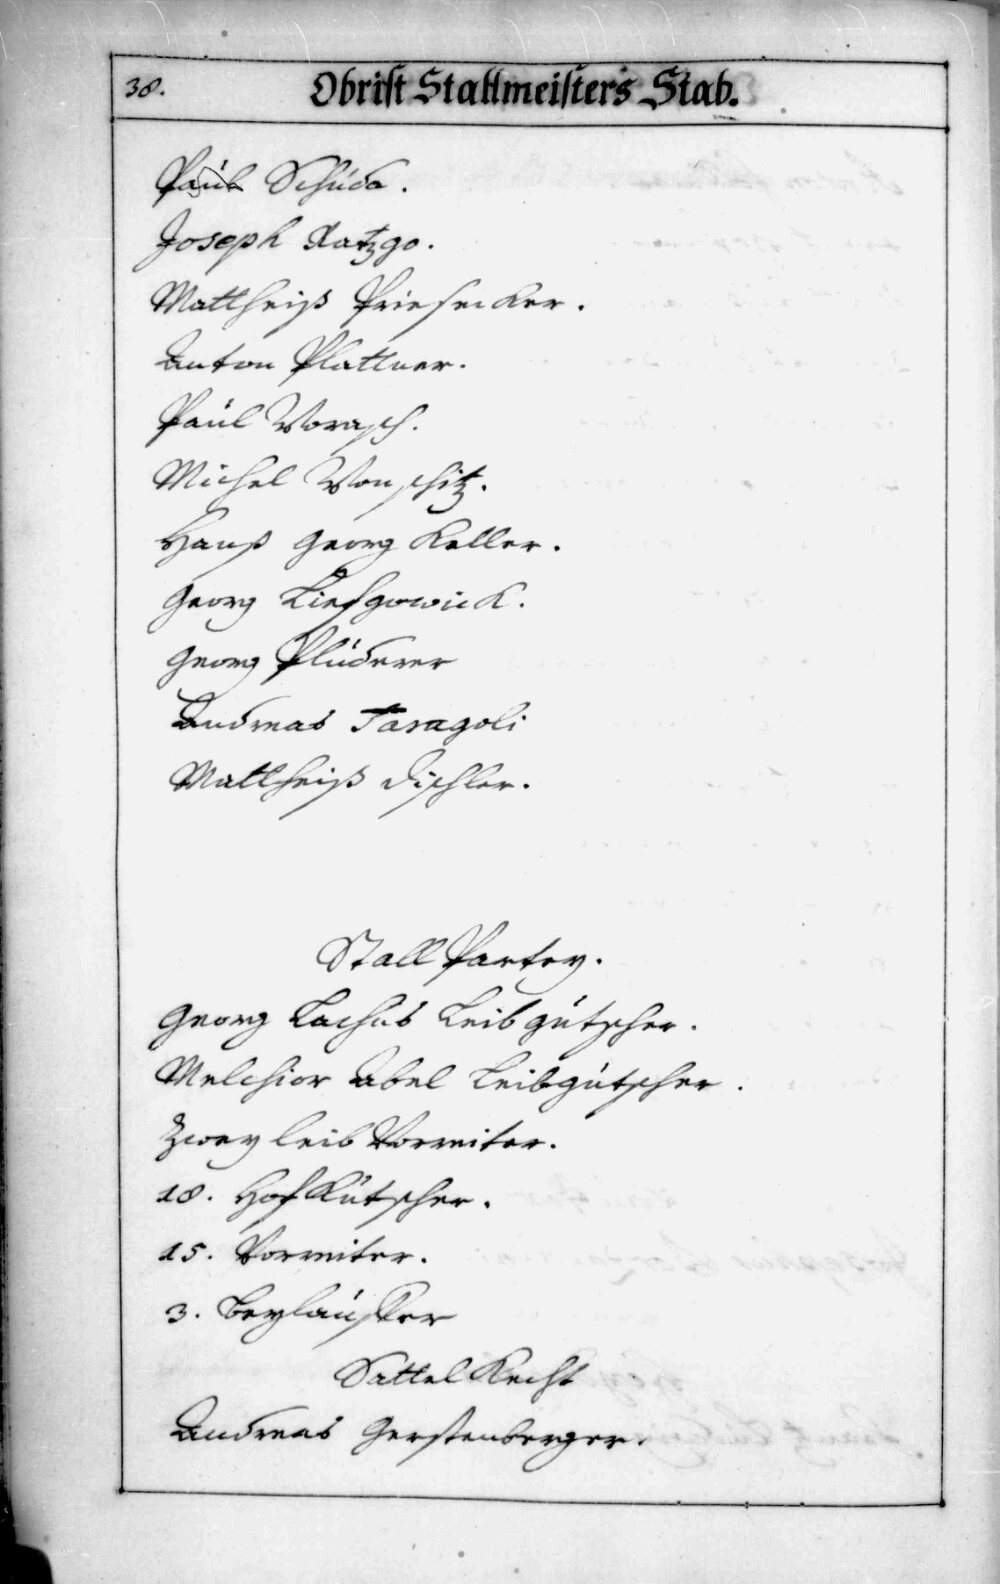 38.
Obrist Stallmeisters Stab.
Paul Schuda.
Joseph Ratzgo.
Mattheiß Priesecker.
Anton Plattner.
Paul Worasch.
Michel Wonschitz.
Hanß Georg Keller.
Georg
Georg Pluderer
Andreas Taragoli
Mattheiß Dischler.
Stall Partey.
Georg Lachus Leibgutscher.
Melchior Abel Leibgutscher.
Zwey leib Vorreiter.
18. Hof Kutscher.
15. Vorreiter.
3. Beyläuffer
Sattel Knecht
Andreas Gerstenberger.